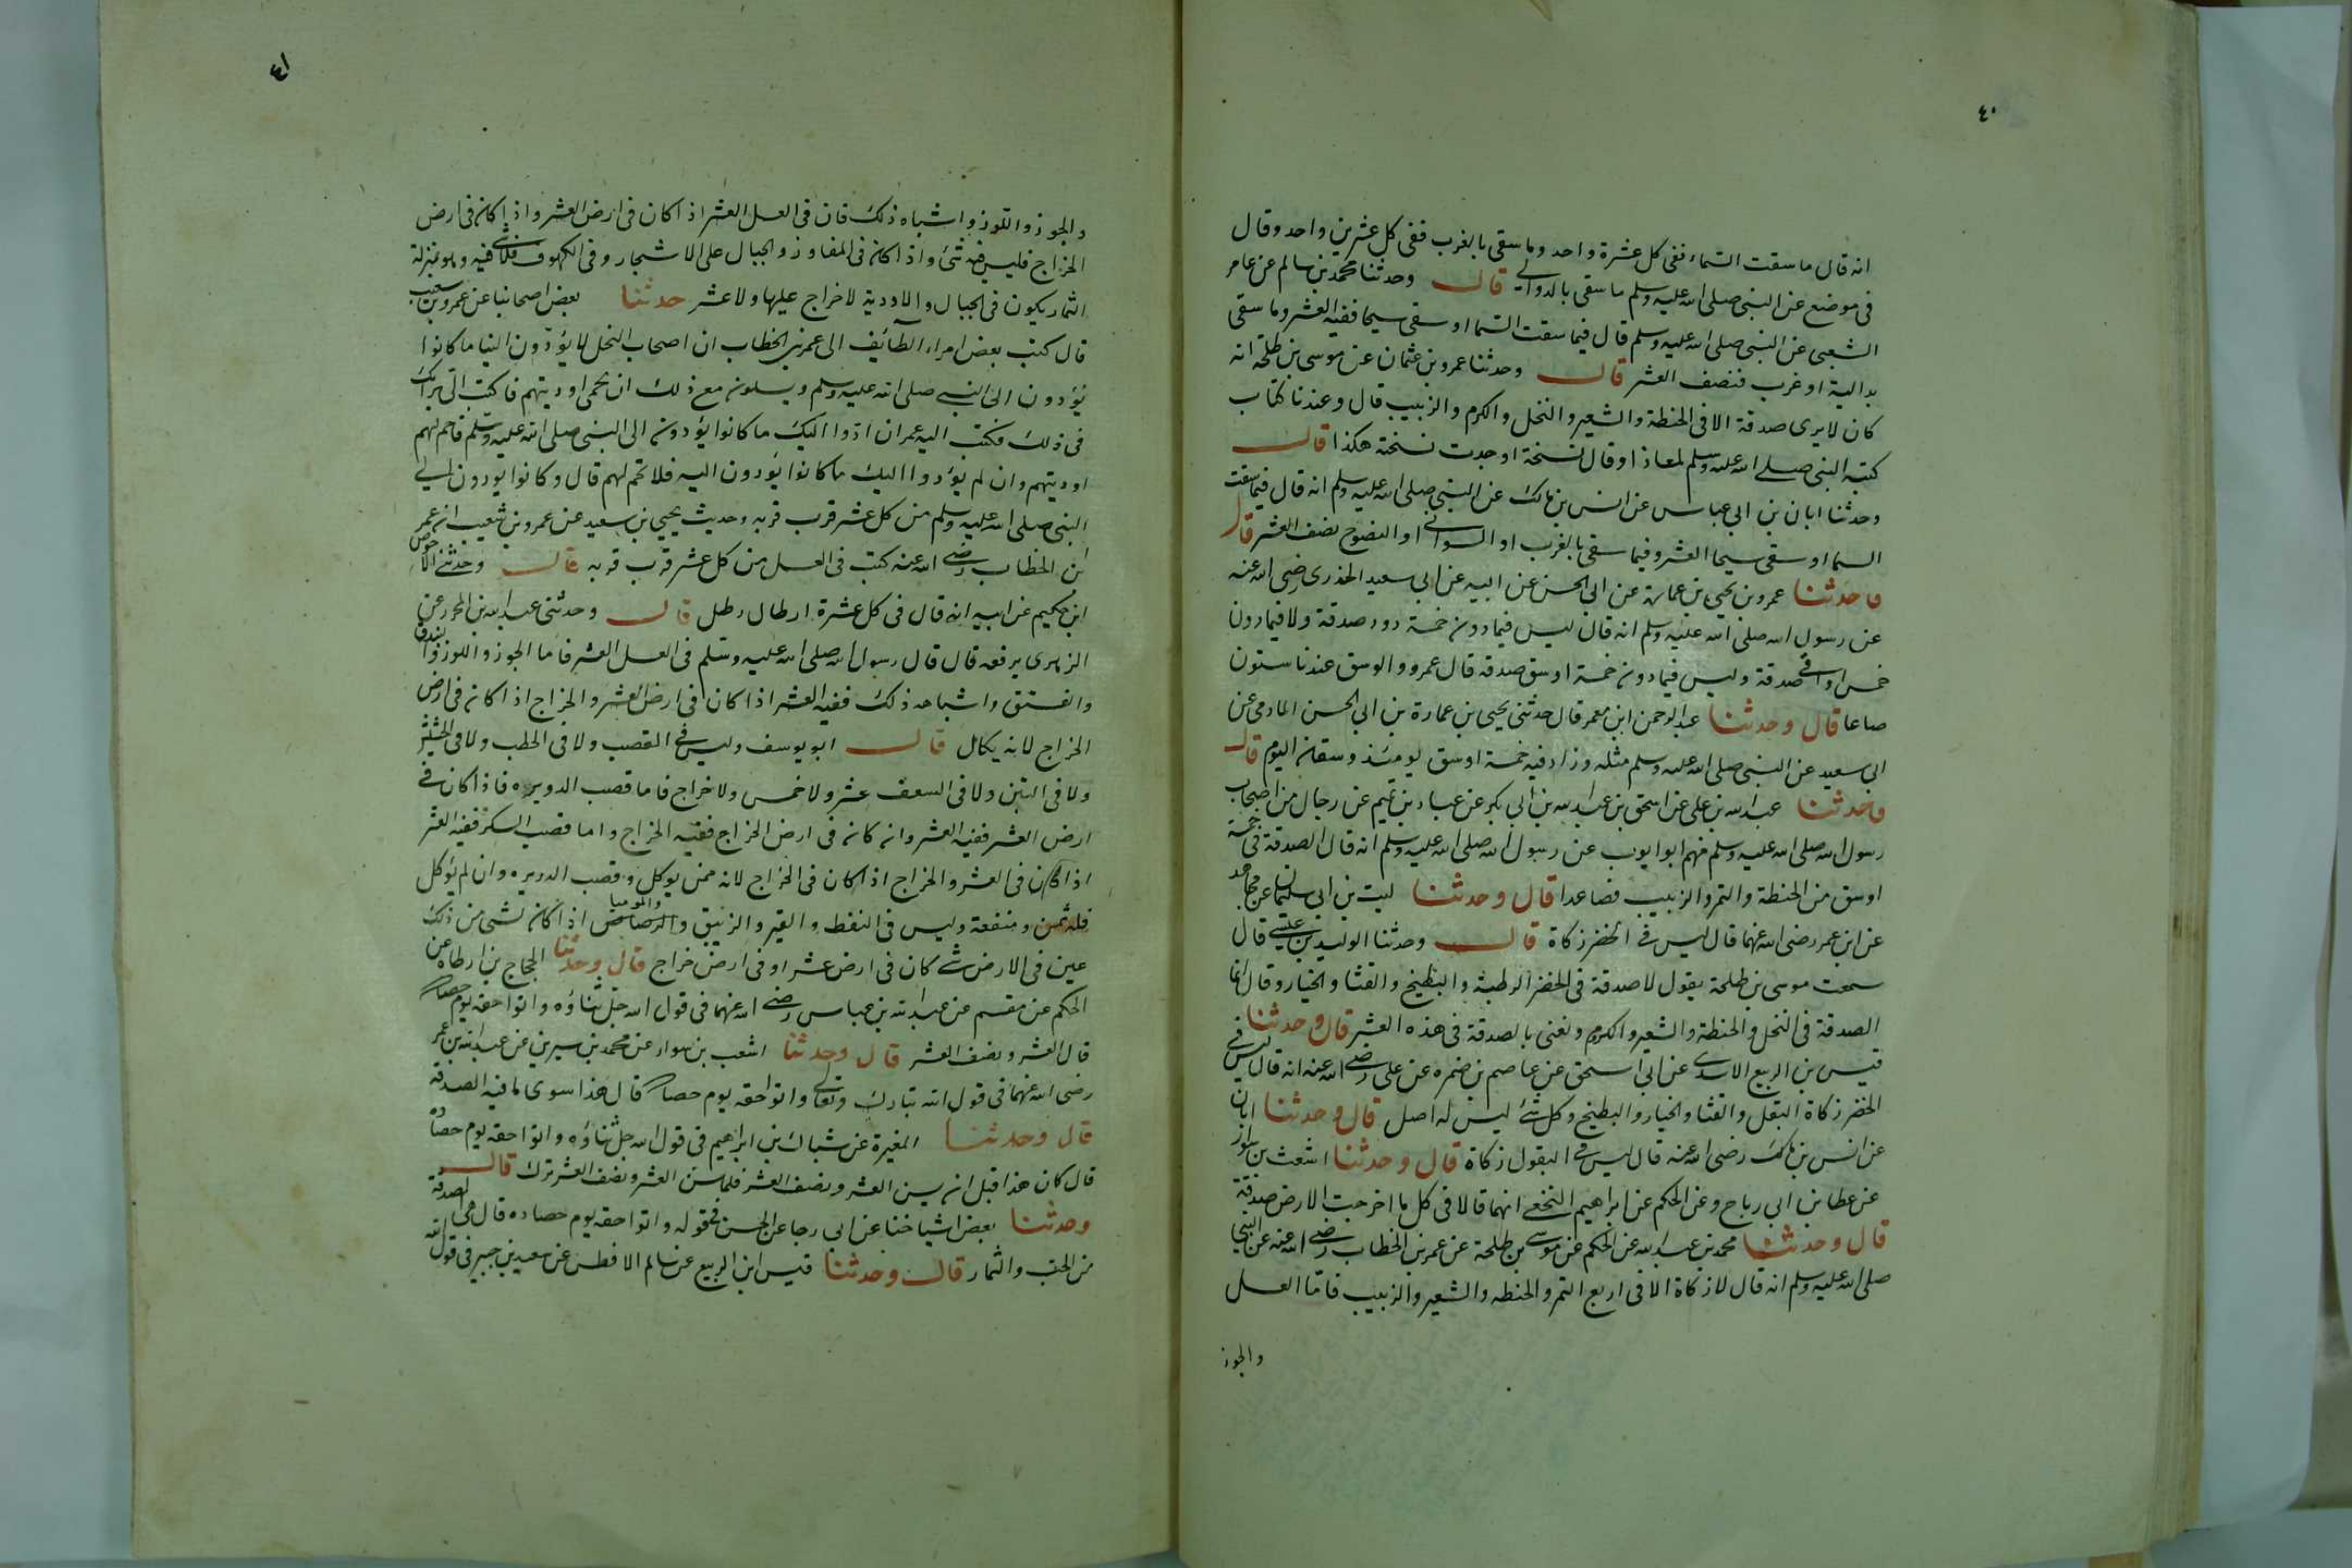 ٤٠
انه قال ما سقت السماء ففى كل عشرة واحد وما سقى بالغرب ففى كل عشرين واحد وقال
فى موضع عن النبى صلى الله عليه وسلم ما سقى بالدوالى قال وحدثنا محمد بن سالم عن عامر
الشعبى عن النبى صلى الله عليه وسلم قال فيما سقت السما او سقى سيحا ففيه العشر وما سقى
بدالية او غرب فنصف العشر قال وحدثنا عمرو بن عثمان عن موسى بن طلحة انه
كان لا يرى صدقة الا فى الحنطة والشعير والنخل والكرم والزبيب قال وعندنا كتاب
كتبه النبى صلى الله عليه وسلم لمعاذ او قال نسخة او وجدت نسخة هكذا قال
وحدثنا ابان بن ابى عياس عن انس بن مالك عن النبى صلى الله عليه وسلم انه قال فيما سقت
السما او سقى سيحا العشر وفيما سقى بالغرب او السوانى او النضوح نصف العشر قال
وحدثنا عمرو بن يحيى بن عمارة عن ابى الحسن عن ابيه عن ابى سعيد الخدرى رضى الله عنه
عن رسول الله صلى الله عليه وسلم انه قال ليس فيما دون خمسة دود صدقة ولا فيما دون
خمس اواقى صدقة وليس فيما دون خمسة اوسق صدقه قال عمرو والوسق عندنا ستون
صاعا قال وحدثنا عبد الرحمن ابن معمر قال حدثنى يحيى بن عمارة بن ابى الحسن المادمى عن
ابى سعيد عن النبى صلى الله عليه وسلم مثله وزاد فيه خمسة اوسق يومئذ وسقان اليوم قال
وحدثنا عبد الله بن على عن اسحق بن عبد الله بن ابى بكر عن عباد بن تميم عن رجال من اصحاب
رسول الله صلى الله عليه وسلم منهم ابو ايوب عن رسول الله صلى الله عليه وسلم انه قال الصدقة فى خمسة
اوسق من الحنطة والتمر والزبيب فصاعدا قال وحدثنا ليث بن ابى سليمان عن مجاهد
عن ابن عمر رضى الله عنهما قال ليس فى الخضر زكاة قال وحدثنا الوليد بن عيسى قال
سمعت موسى بن طلحة يقول لا صدقة فى الخضر الرطبة والبطيخ والقثا والخيار وقال انما
الصدقة فى النخل والحنطة والشعير والكرم ونعنى بالصدقة فى هذه العشر قال وحدثنا
قيس بن الربيع الاسدى عن ابى اسحق عن عاصم بن ضمره عن على رضى الله عنه انه قال ليس فى
الخضر زكاة البقل والقثا والخيار والبطيخ وكل شئ ليس له اصل قال وحدثنا ابان
عن انس بن مالك رضى الله عنه قال ليس فى البقول زكاة قال وحدثنا اشعث بن سوار
عن عطا بن ابى رباح وعن الحكم عن ابراهيم النخعى انهما قالا فى كل ما اخرجت الارض صدقة
قال وحدثنا محمد بن عبد الله عن الحكم عن موسى بن طلحة عن عمر بن الخطاب رضى الله عنه عن النبى
صلى الله عليه وسلم انه قال لا زكاة الا فى اربع التمر والحنطه والشعير والزبيب فاما العسل
والجوز
٤١
والجوز واللوز واشباه ذلك فان فى العسل العشر اذا كان فى ارض العشر واذا كان فى ارض
الخراج فليس فيه شئ واذا كان فى المفاوز والجبال على الاشجار وفى الكهوف فلا شئ فيه وهو بمنزلة
الثمار يكون فى الجبال والاودية لا خراج عليها ولا عشر حدثنا بعض اصحابنا عن عمرو بن شعيب
قال كتب بعض امراء الطائف الى عمر بن الخطاب ان اصحاب النحل لا يؤدون الينا ما كانوا
يؤدون الى النبى صلى الله عليه وسلم ويسلون مع ذلك ان يحمى اوديتهم فاكتب الى برايك
فى ذلك فكتب اليه عمر ان ادوا اليك ما كانوا يؤدونه الى النبى صلى الله عليه وسلم فاحم لهم
اوديتهم وان لم يؤدوا اليك ما كانوا يؤدون اليه فلا تحم لهم قال وكانوا يودون الى
النبى صلى الله عليه وسلم من كل عشر قرب قربه وحديث يحيى بن سعيد عن عمرو بن شعيب ان عمر
بن الخطاب رضى الله عنه كتب فى العسل من كل عشر قرب قربه قال وحدثنى الاحوص
ابن حكيم عن ابيه انه قال فى كل عشرة ارطال رطل قال وحدثنى عبد الله بن المحرر عن
الزهرى يرفعه قال قال رسول الله صلى الله عليه وسلم فى العسل العشر فاما الجوز واللوز والبندق
والفستق واشباه ذلك ففيه العشر اذا كان فى ارض العشر والخراج اذا كان فى ارض
الخراج لانه يكال قال ابو يوسف وليس فى القصب ولا فى الحطب ولا فى الحشيش
ولا فى التبن ولا فى السعف عشر ولا خمس ولا خراج فاما قصب الدويره فاذا كان فى
ارض العشر ففيه العشر وان كان فى ارض الخراج ففيه الخراج واما قصب السكر ففيه العشر
اذا كان فى العشر والخراج اذا كان فى الخراج لانه ممن يوكل وقصب الدريره وان لم يؤكل
فله ثمن ومنفعة وليس فى النفط والقير والزئبق والموميا والرصاص اذا كان لشى من ذلك
عين فى الارض شى كان فى ارض عشر او فى ارض خراج قال وحدثنا الحجاج بن ارطاه عن
الحكم عن مقسم عن عبد الله بن عباس رضى الله عنهما فى قول الله جل ثناؤه واتوا حقه يوم حصاده
قال العشر ونصف العشر قال وحدثنا اشعب بن سوار عن محمد بن سيرين عن عبد الله بن عمر
رضى الله عنهما فى قول الله تبارك وتعالى واتوا حقه يوم حصاده قال هذا سوى ما فيه الصدقة
قال وحدثنا المغيرة عن شباك بن ابراهيم فى قول الله جل ثناؤه واتوا حقه يوم حصاده
قال كان هذا قبل ان يسن العشر ونصف العشر فلما سن العشر ونصف العشر ترك قال
وحدثنا بعض اشياخنا عن ابى رجا عن الحسن فى قوله واتوا حقه يوم حصاده قال هى الصدقة
من الحب والثمار قال وحدثنا قيس ابن الربيع عن سالم الافطس عن سعيد بن جبير فى قول الله